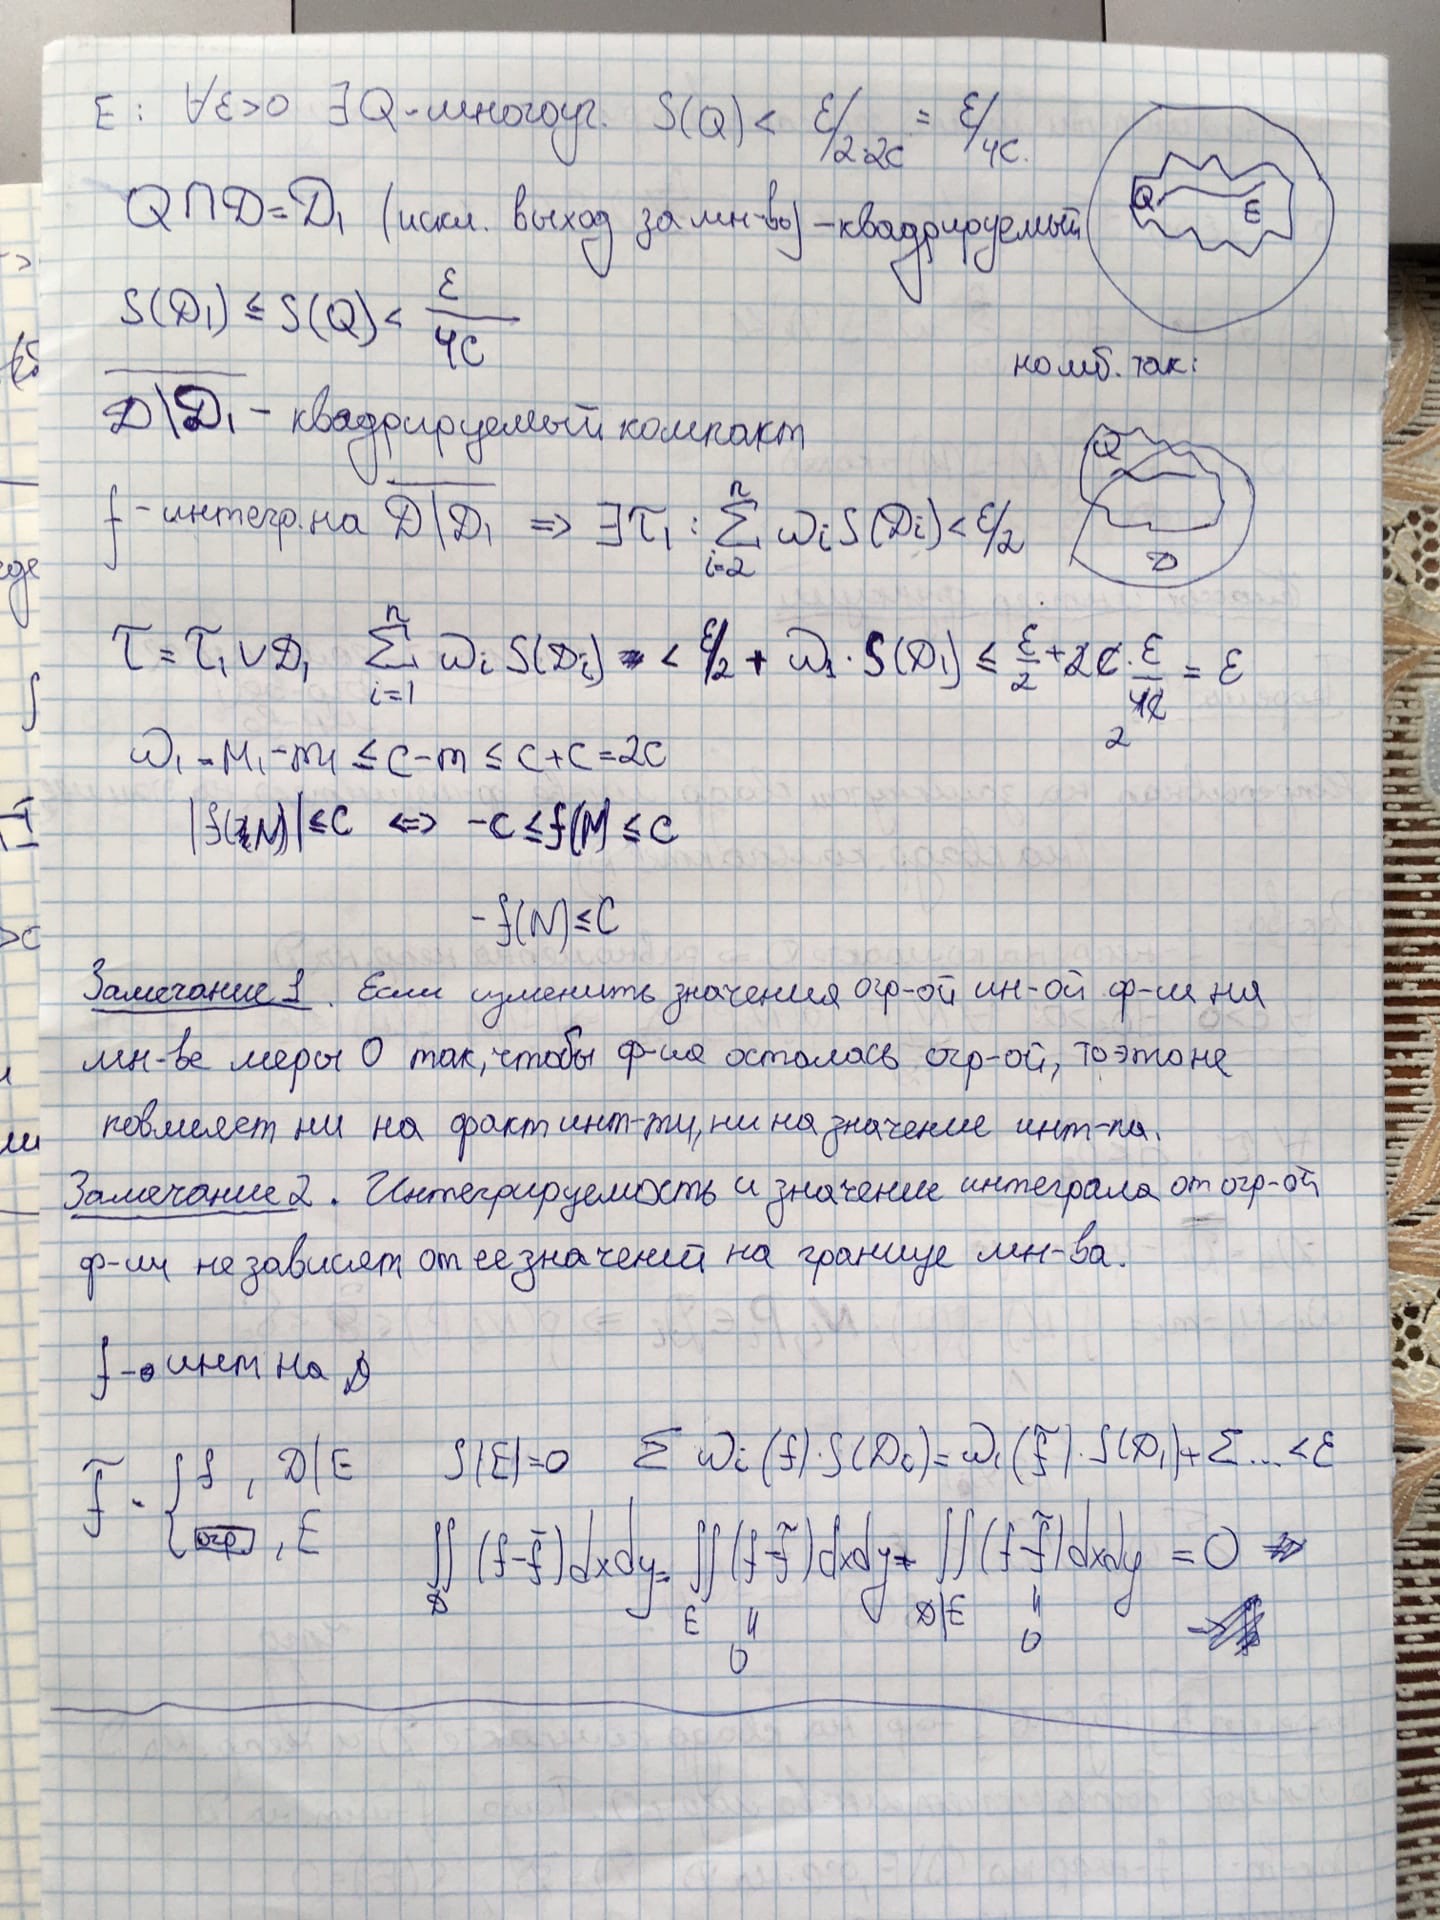 E: ∀ε>0 ∃Q-многоуг. S(Q) < ε/2·2C = ε/4C.
Q∩D=D₁ (искл. выход за мн-во) – квадрируемый
Q E
S(D₁) ≤ S(Q) < ε/4C
по мб. так:
D\D₁ – квадрируемый компакт
Q D
f – интегр. на D\D₁ => ∃τ₁: Σ_{i=2}^{n} ω_i S(D_i) < ε/2
τ = τ₁ ∨ D₁ Σ_{i=1}^{n} ω_i S(D_i) < ε/2 + ω₁·S(D₁) ≤ ε/2 + 2C·ε/4C = ε
2
ω₁ = M₁-m₁ ≤ C-m ≤ C+C=2C
|f(N)| ≤ C <=> -C ≤ f(N) ≤ C
-f(N) ≤ C
Замечание 1. Если изменить значения огр-ой ин-ой ф-ии на
мн-ве меры 0 так, чтобы ф-ия осталась огр-ой, то это не
повлияет ни на факт инт-ти, ни на значение инт-ла.
Замечание 2. Интегрируемость и значение интеграла от огр-ой
ф-ии не зависят от ее значений на границе мн-ва.
f – инт на D
f̃ = { f, D\E S(E)=0 Σ ω_i(f)·S(D_i) = ω₁(f̃)·S(D₁) + Σ... < ε
огр, E
∬_D (f-f̃)dxdy = ∬_E (f-f̃)dxdy + ∬_{D\E} (f-f̃)dxdy = 0 =>
" 0 " 0